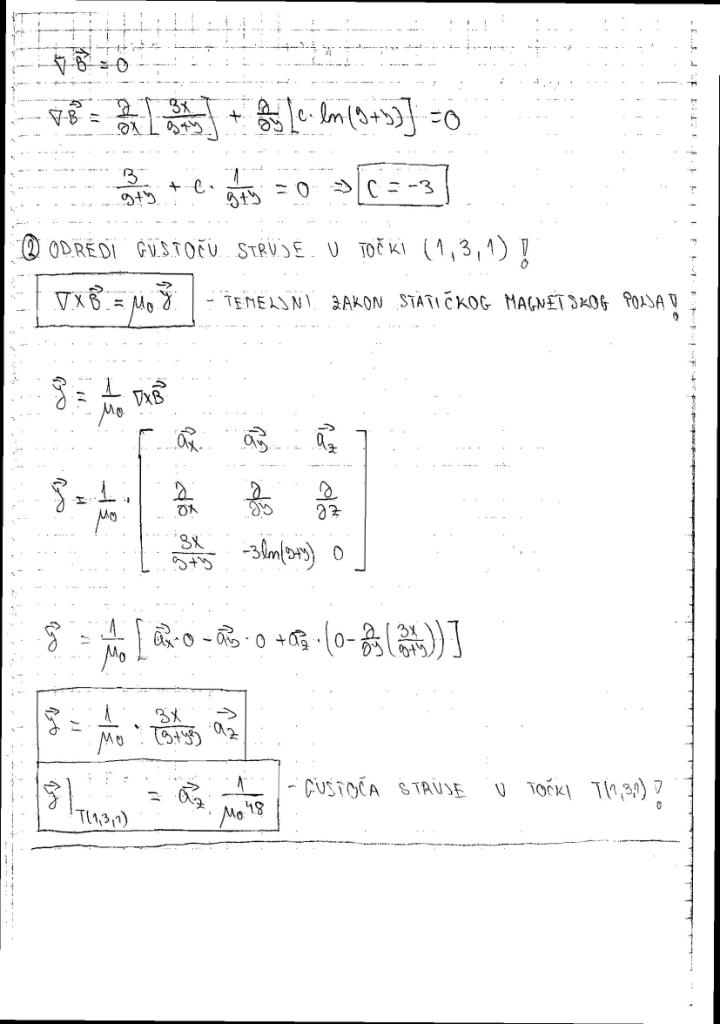 ∇B⃗ = 0
∇B⃗ = ∂/∂x [3x/(9+y)] + ∂/∂y [c · ln(9+y)] = 0
3/(9+y) + c · 1/(9+y) = 0 ⇒ c = -3
② ODREDI GUSTOĆU STRUJE U TOČKI (1,3,1) !
∇×B⃗ = μ₀ J⃗ - TEMELJNI ZAKON STATIČKOG MAGNETSKOG POLJA !
J⃗ = 1/μ₀ ∇×B⃗
J⃗ = 1/μ₀ · [ a⃗x a⃗y a⃗z
∂/∂x ∂/∂y ∂/∂z
3x/(9+y) -3ln(9+y) 0 ]
J⃗ = 1/μ₀ [ a⃗x·0 - a⃗y·0 + a⃗z·(0 - ∂/∂y (3x/(9+y))) ]
J⃗ = 1/μ₀ · 3x/(9+y)² a⃗z
J⃗ |T(1,3,1) = a⃗z 1/(μ₀48) - GUSTOĆA STRUJE U TOČKI T(1,3,1) !